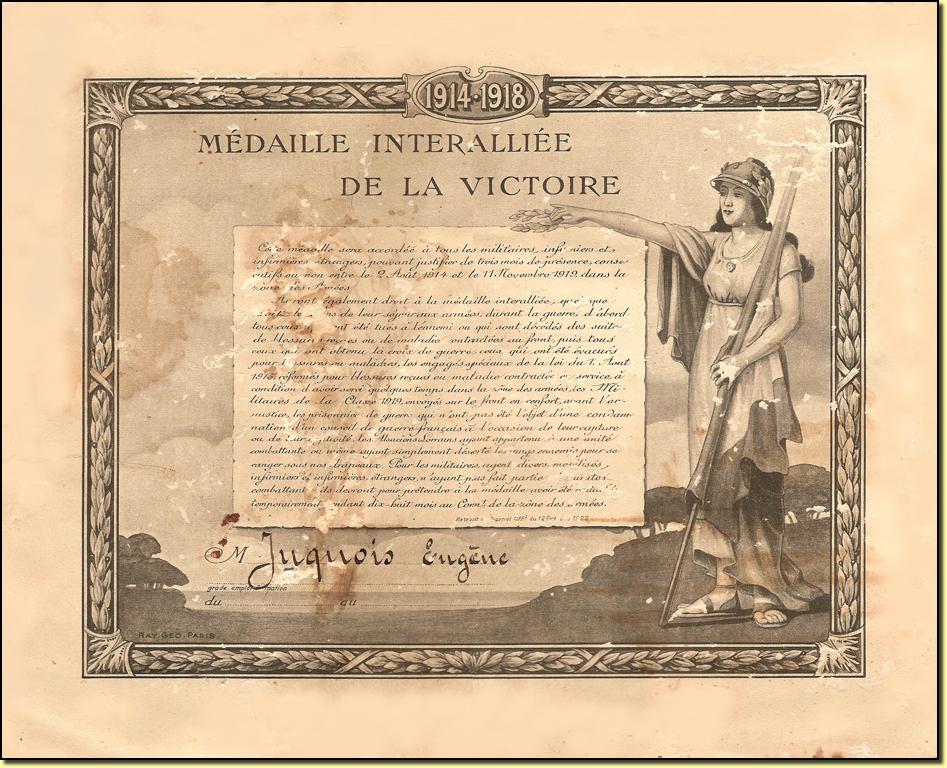 1914-1918
MÉDAILLE INTERALLIÉE
DE LA VICTOIRE
Cette médaille sera accordée à tous les militaires, infirmiers et
infirmières étrangers, pouvant justifier de trois mois de présence, consé
cutifs ou non entre le 2 Août 1914 et le 11 Novembre 1919, dans la
zône des Armées
Auront également droit à la médaille interalliée, que
soit de leur séjour aux armées, durant la guerre, d'abord
tous ceux qui ont été tués à l'ennemi ou qui sont décédés des suites
de blessures reçues ou de maladie contractées au front, puis tous
ceux qui ont obtenu la croix de guerre ceux qui ont été évacués
pour blessures ou maladies, les engagés spéciaux de la loi du Août
1915 réformés pour blessures reçues ou maladie contractée en service, à
condition d'avoir servi quelques temps dans la zône des armées, les Mi-
litaires de la Classe 1919, envoyés sur le front en renfort, avant l'ar-
mistice, les prisonnier de guerre qui n'ont pas été l'objet d'une condam
nation d'un conseil de guerre français à l'occasion de leur capture
ou de leur captivité, les Alsaciens Lorrains ayant appartenu à une unité
combattante ou même ayant simplement déserté les rangs ennemis pour se
ranger sous nos drapeaux. Pour les militaires, agent divers mobilisés,
infirmiers et infirmières, étrangers, n'ayant pas fait partie
combattant ils devront pour prétendre à la médaille avoir été
temporairement pendant dix-huit mois au Comt de la zône des armées.
M Juquois Eugène
grade emploi
du au
RAY GEO-PARIS